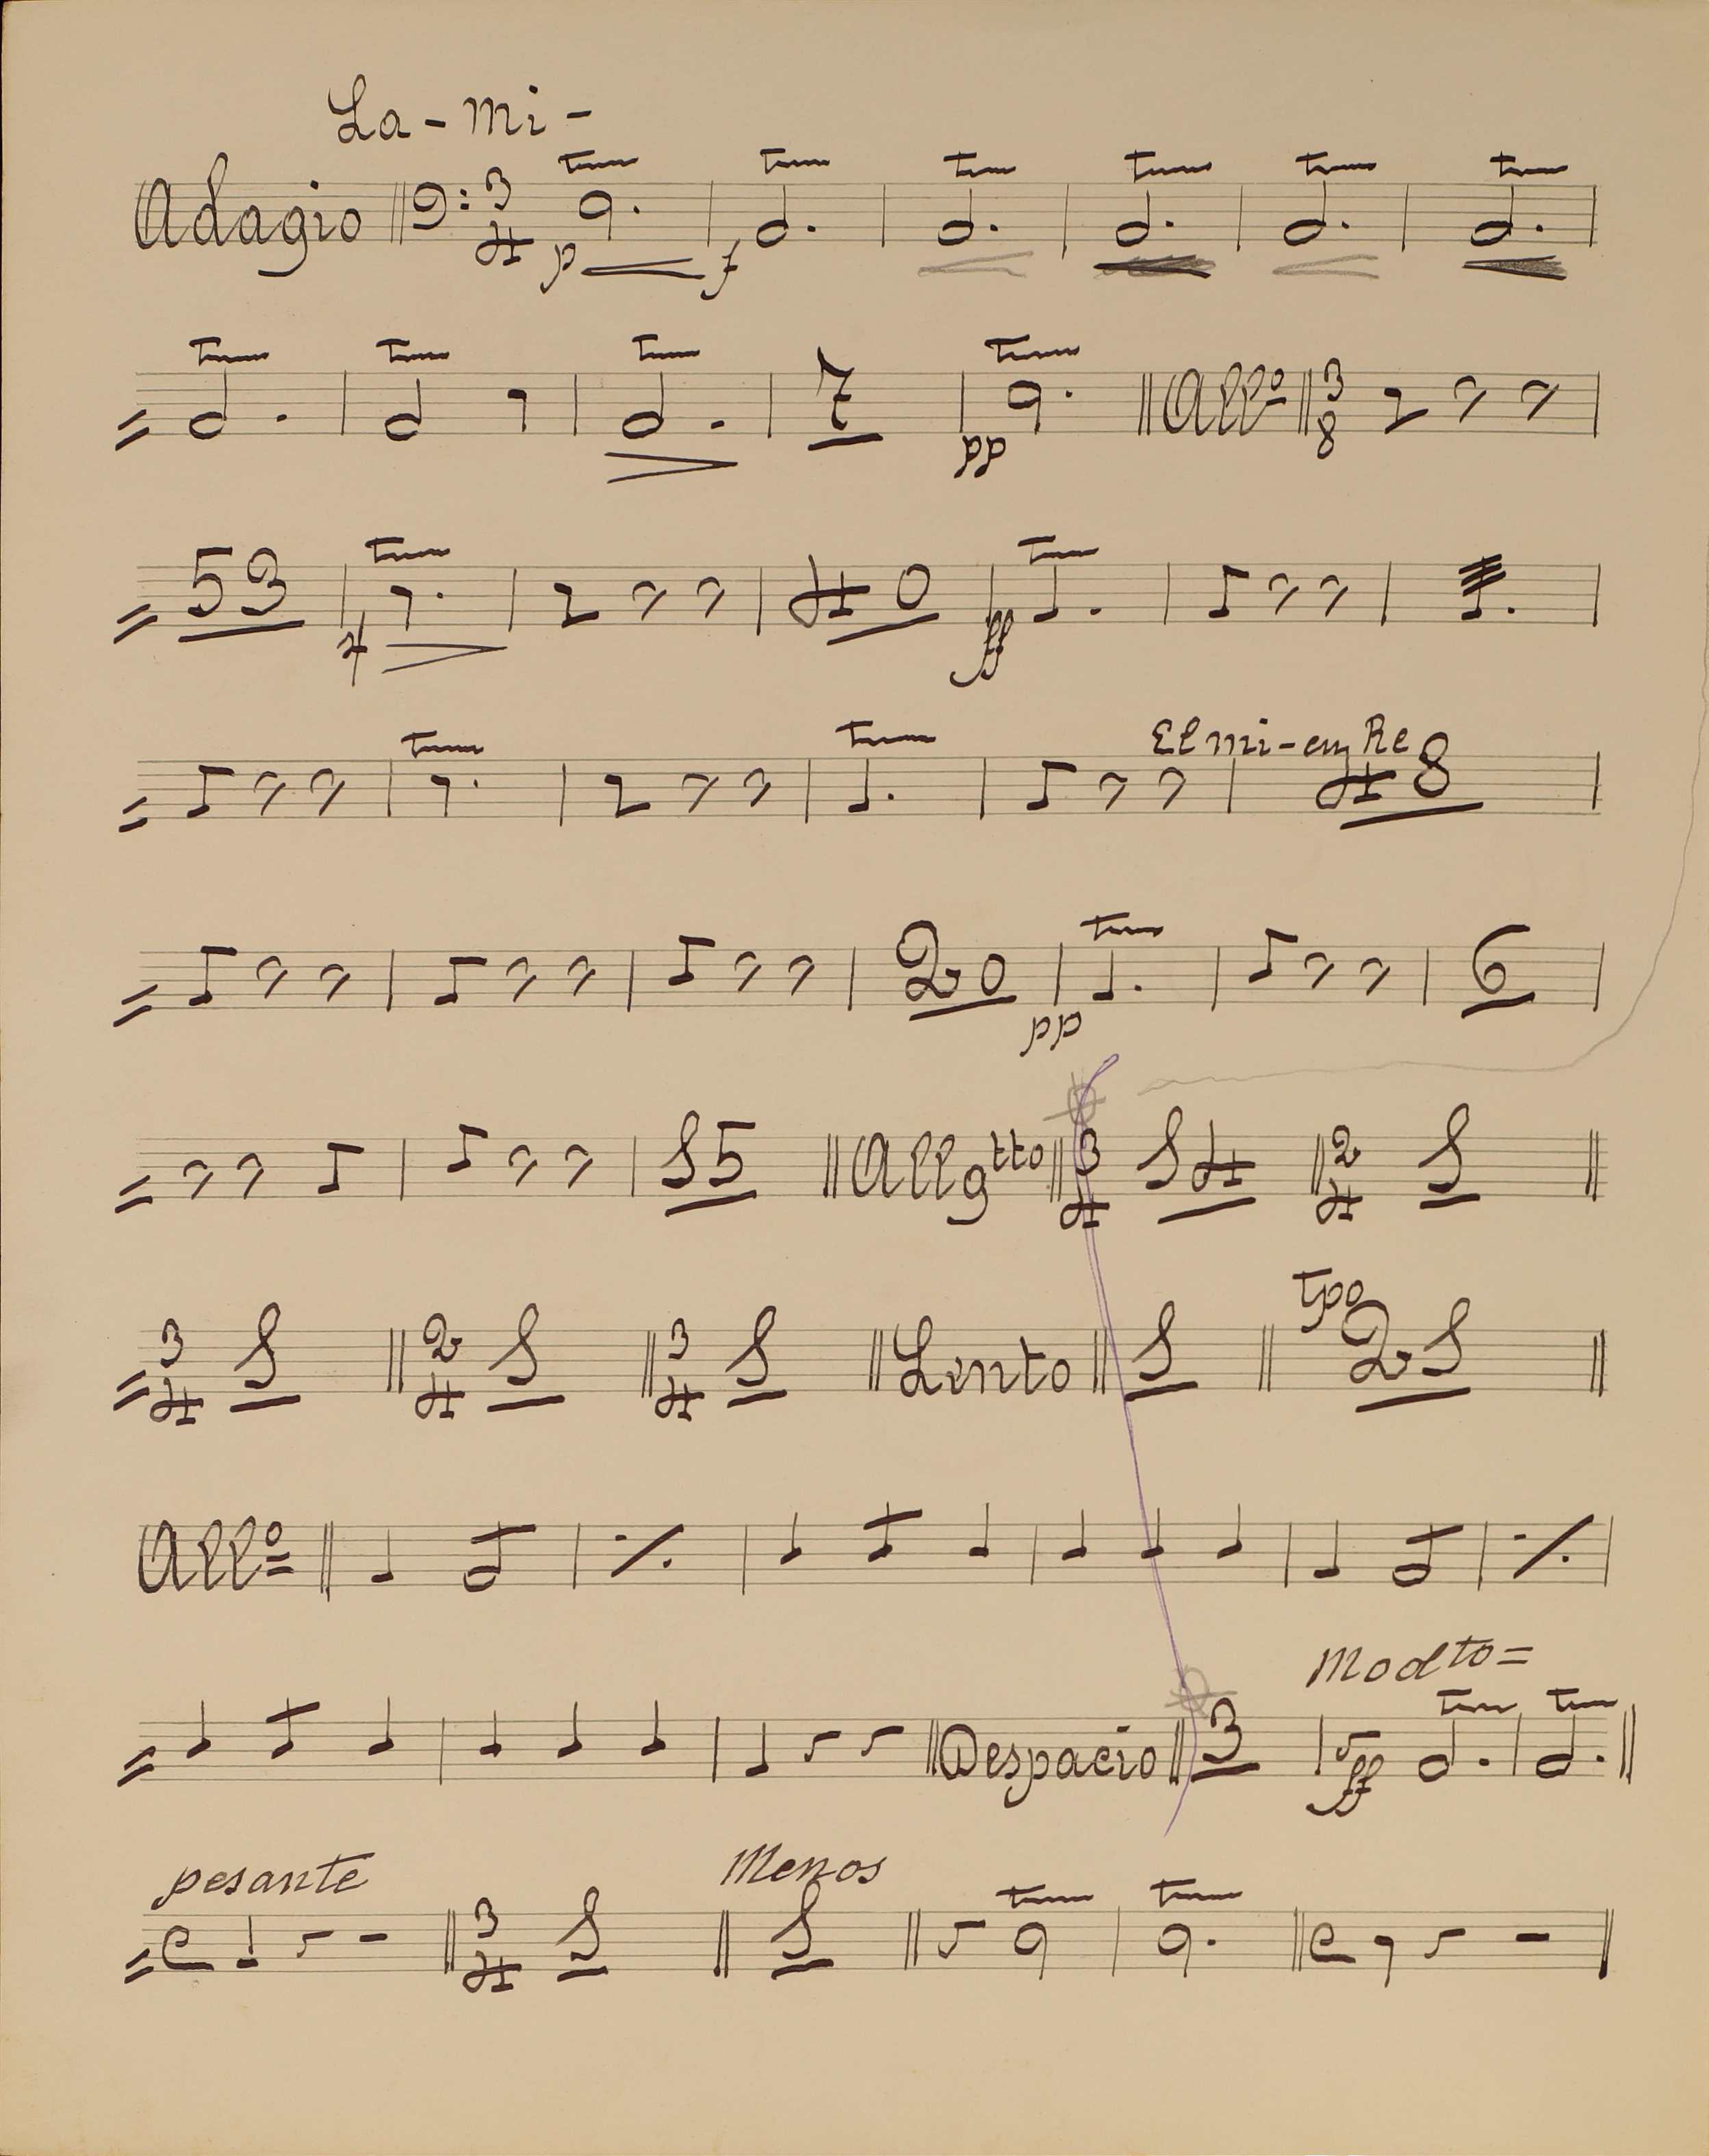 La - Mi -
Adagio 3 4 p f
7 pp Allº 3 8
53 f 40 ff
El mi - en Re 48
20 pp 6
15 Allgtto 3 4 14 2 4 1
3 4 1 2 4 1 3 4 1 Lento 1 tpo 21
Allº
Modto =
Despacio 3 ff
pesante Menos
C 3 4 1 1 C